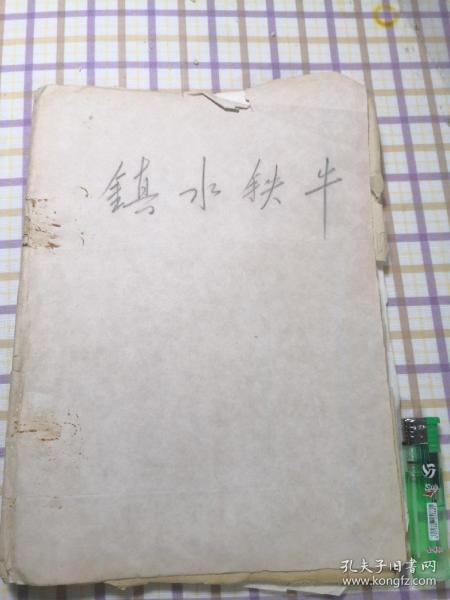 鎮水铁牛
孔夫子旧书网
www.kongfz.com